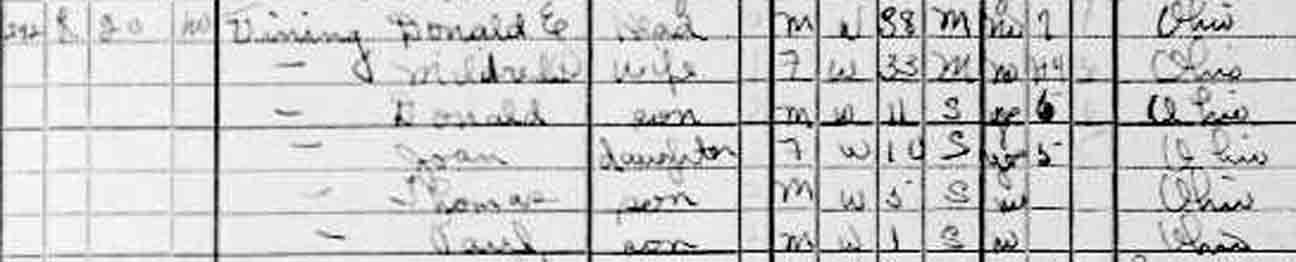 292 R 20 no Vining Donald E Head M W 38 M no 7 Ohio
— Mildred Wife F W 33 M no H4 Ohio
— Donald son M W 11 S yes 6 Ohio
— Joan daughter F W 10 S yes 5 Ohio
— Thomas son M W 5 S no Ohio
— Paul son M W 1 S no Ohio